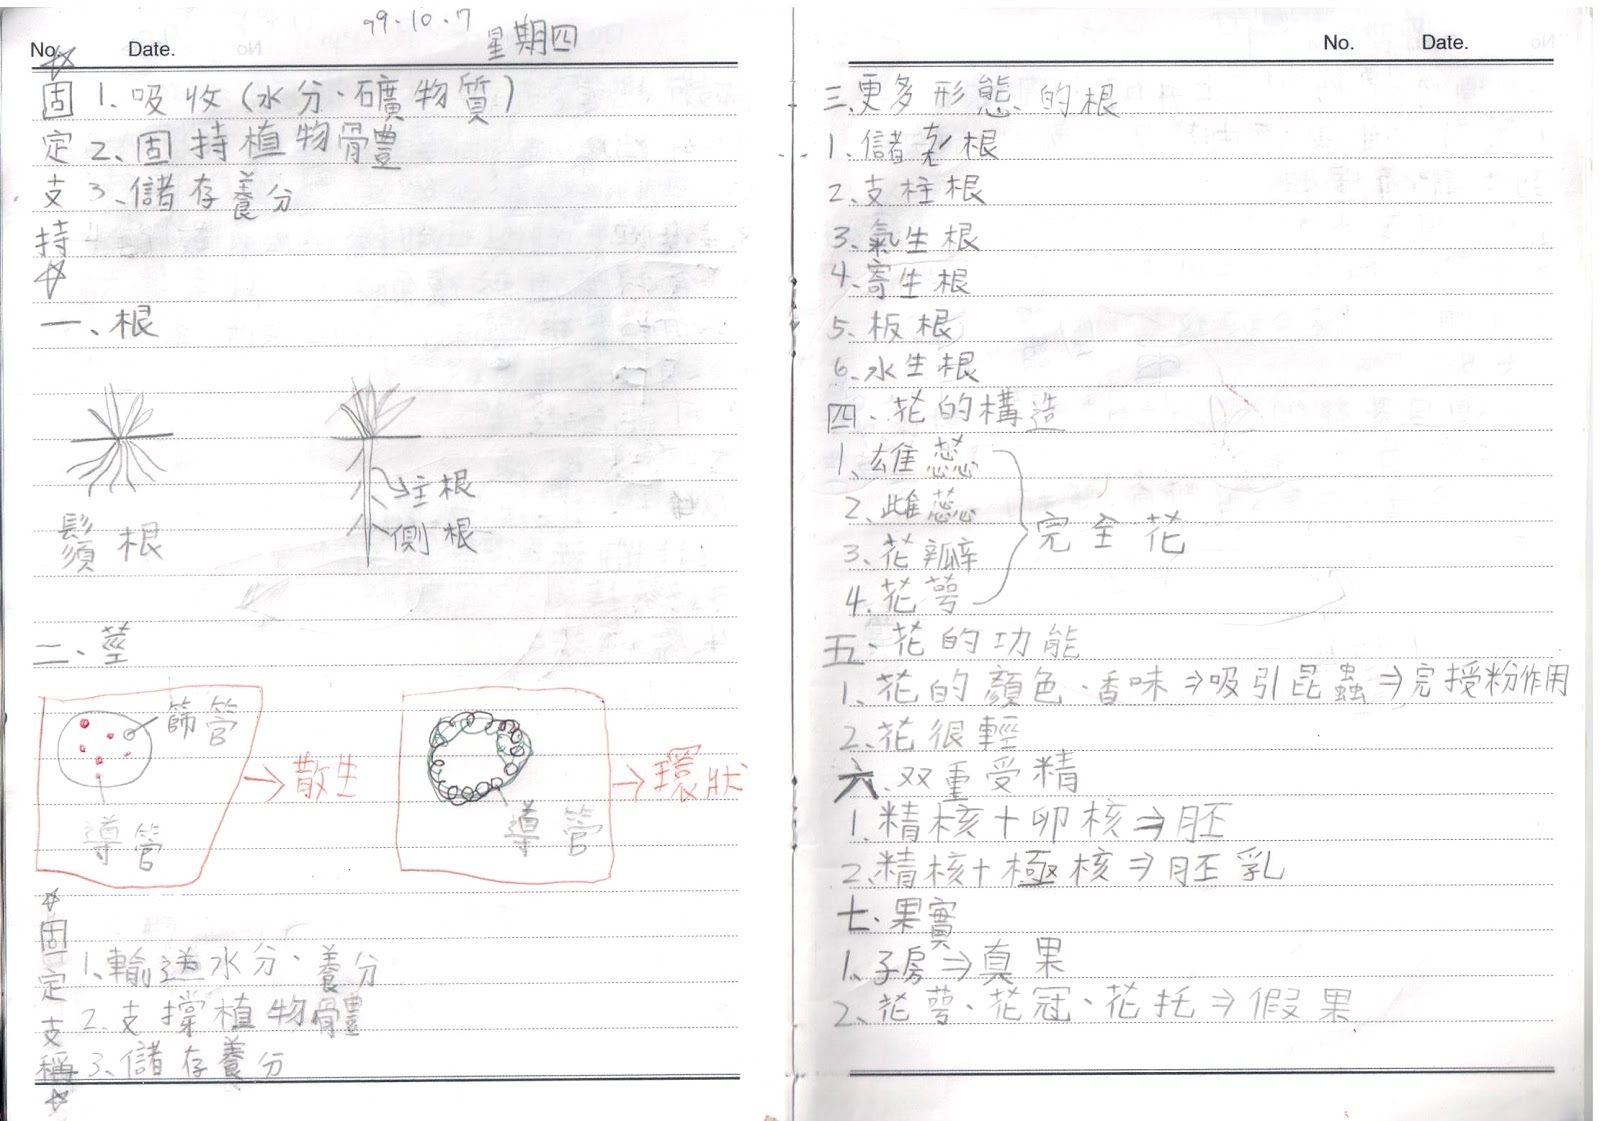 99.10.7
星期四
No.
Date.
固定支持
1、吸收(水分、礦物質)
2、固持植物體
3、儲存養分
一、根
鬚根
主根
側根
二、莖
篩管
導管
→散生
導管
→環狀
固定支稱
1、輸送水分、養分
2、支撐植物體
3、儲存養分
No.
Date.
三.更多形態的根
1、儲 根
2、支柱根
3、氣生根
4、寄生根
5、板根
6、水生根
四、花的構造
1、雄蕊
2、雌蕊
3、花瓣
4.花萼
完全花
五、花的功能
1、花的顏色、香味⇒吸引昆蟲⇒完授粉作用
2、花很輕
六、双重受精
1、精核+卵核⇒胚
2、精核+極核⇒胚乳
七、果實
1、子房⇒真果
2、花萼、花冠、花托⇒假果